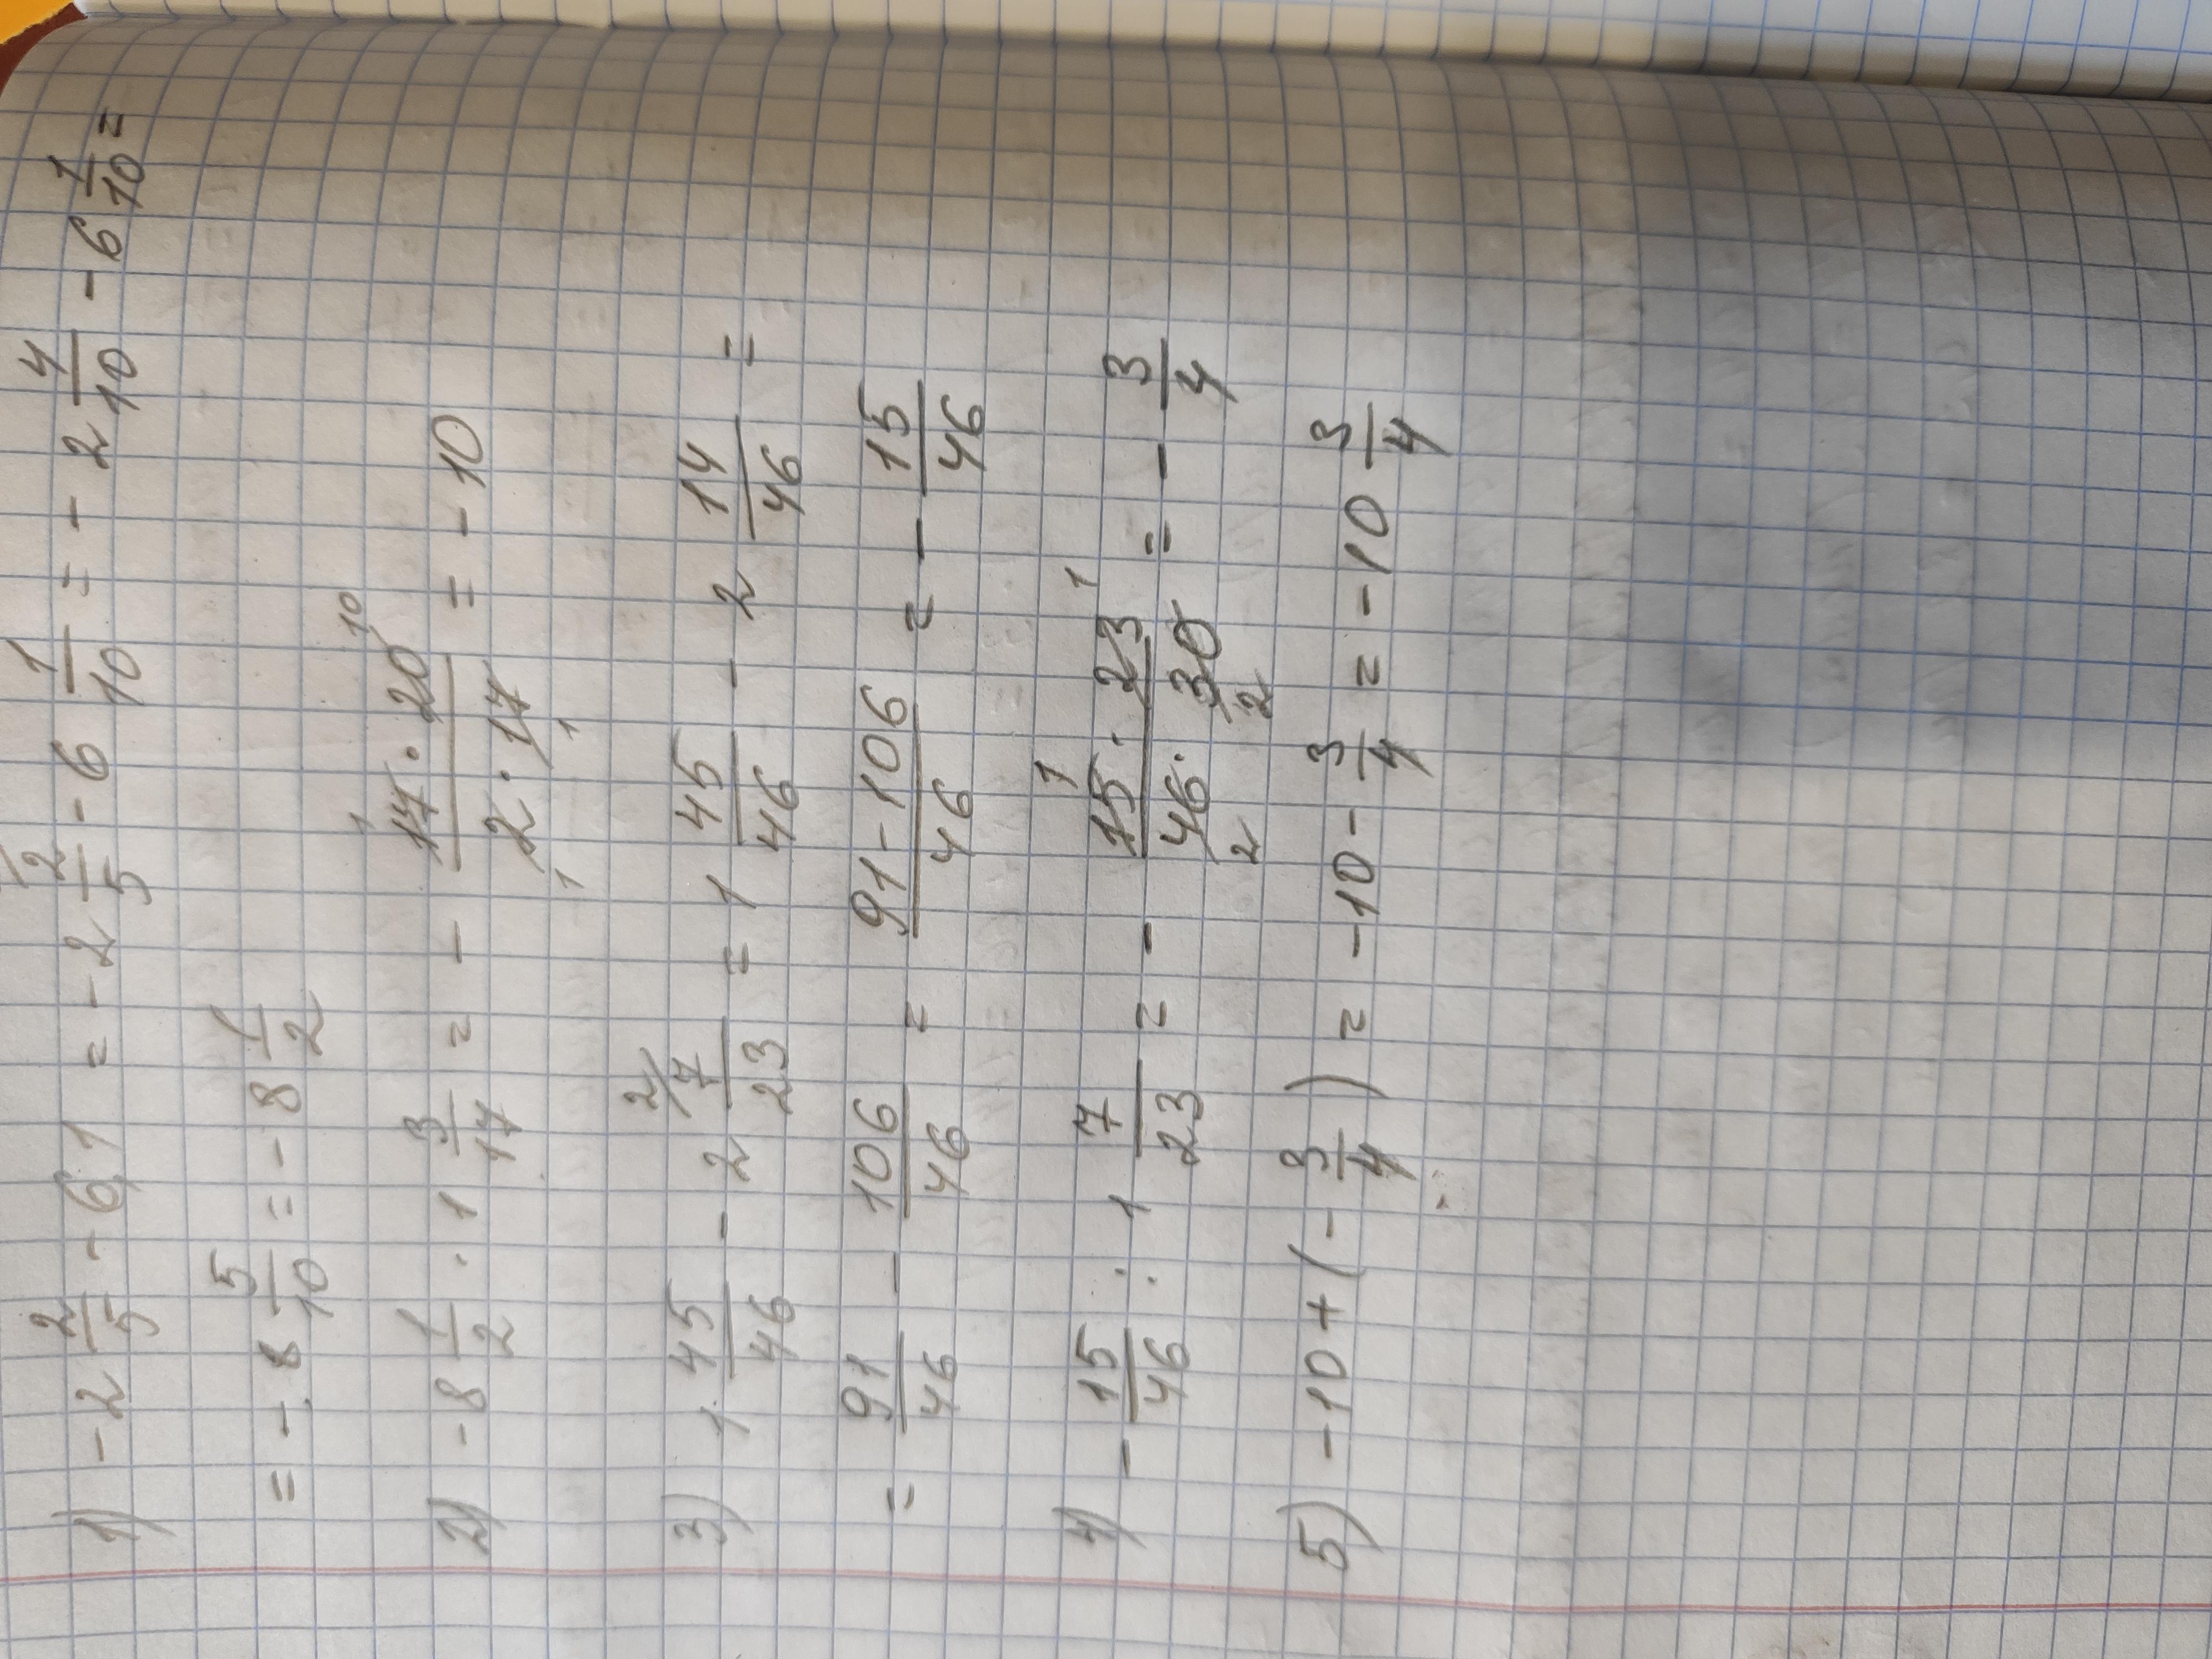 1) -2 2/5 - 6,1 = -2 2/5 - 6 1/10 = -2 4/10 - 6 1/10 =
= -8 5/10 = -8 1/2
2) -8 1/2 · 1 3/17 = - (17 · 20)/(2 · 17) = -10
3) 1 45/46 - 2 7/23 = 1 45/46 - 2 14/46 =
= 91/46 - 106/46 = (91-106)/46 = - 15/46
4) - 15/46 : 1 7/23 = - (15 · 23)/(46 · 30) = - 3/4
5) -10 + (- 3/4) = -10 - 3/4 = -10 3/4